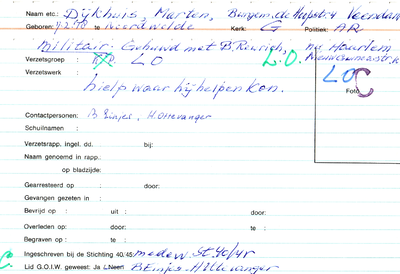 Naam etc.: Dijkhuis, Marten, Burgem. de Kopstr 4 Veendam
Geboren: te Noordwolde Kerk: G Politiek: AR
Militair. Gehuwd met B. nu Haarlem
Verzetsgroep : LO L.O.
Verzetswerk : LO C
hielp waar hij helpen kon. Foto
Contactpersonen: B Eimjes, H. Ottevanger
Schuilnaam :
Verzetsrapp. ingel. dd. bij:
Naam genoemd in rapp.:
op bladzijde:
Gearresteerd op : door:
Gevangen gezeten in :
Bevrijd op : uit : door:
Overleden op: door: te :
Begraven op : te :
C Ingeschreven bij de Stichting 40/45: medew. St 40/45
Lid G.O.I.W. geweest: Ja / Neen